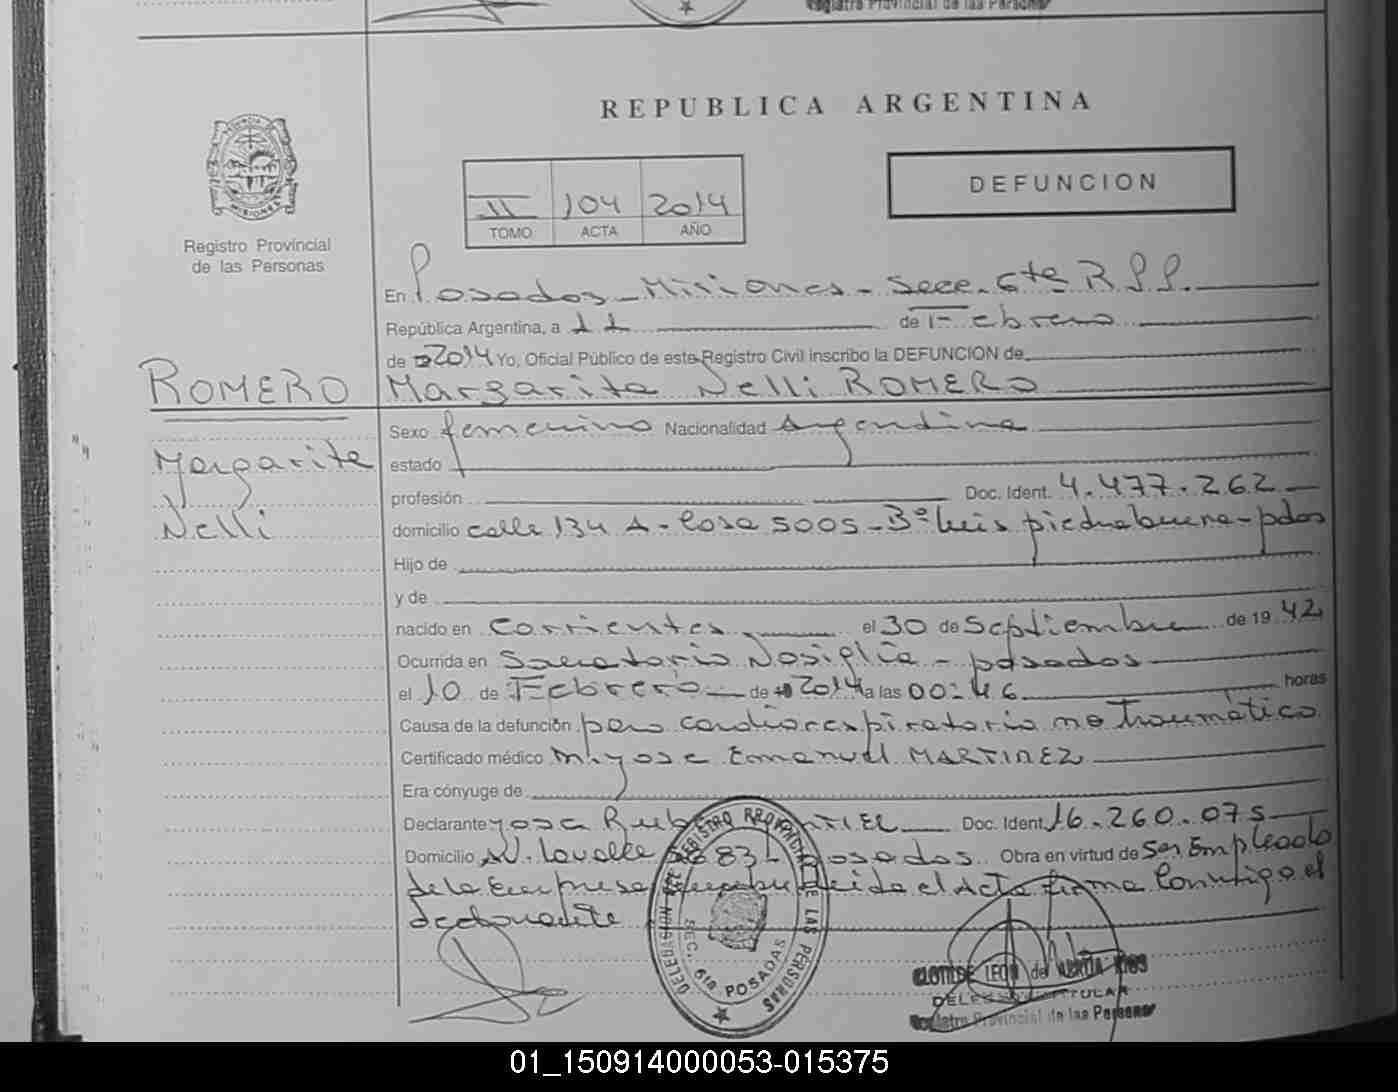 Registro Provincial de las Personas
REPUBLICA ARGENTINA
DEFUNCION
II 104 2014
TOMO ACTA AÑO
Registro Provincial
de las Personas
En Posadas - Misiones - Secc. 6ta R.P.P.
República Argentina, a 11 de Febrero
de 2014 Yo, Oficial Público de este Registro Civil inscribo la DEFUNCION de
ROMERO
Margarita Nelli ROMERO
Sexo femenino Nacionalidad Argentina
Margarita
estado
profesión Doc. Ident. 4.477.262
Nelli
domicilio calle 134 A - Casa 5005 - Bº Luis piedrabuena - pdas
Hijo de
y de
nacido en Corrientes el 30 de Septiembre de 1942
Ocurrida en Sanatorio Nosiglia - posadas
el 10 de Febrero de 2014 a las 00:46 horas
Causa de la defunción paro cardiorespiratorio no Traumático
Certificado médico M. Jose Emanuel MARTINEZ
Era cónyuge de
Declarante Jose Doc. Ident. 16.260.075
Domicilio Av. Lavalle posadas. Obra en virtud de Ser Empleado
de la Empresa el Acta firma Conmigo el
declarante
DELEGACION DEL REGISTRO PROVINCIAL DE LAS PERSONAS
SEC. 6ta POSADAS
CLOTILDE LEON de
DELEGADA TITULAR
Registro Provincial de las Personas
01_150914000053-015375